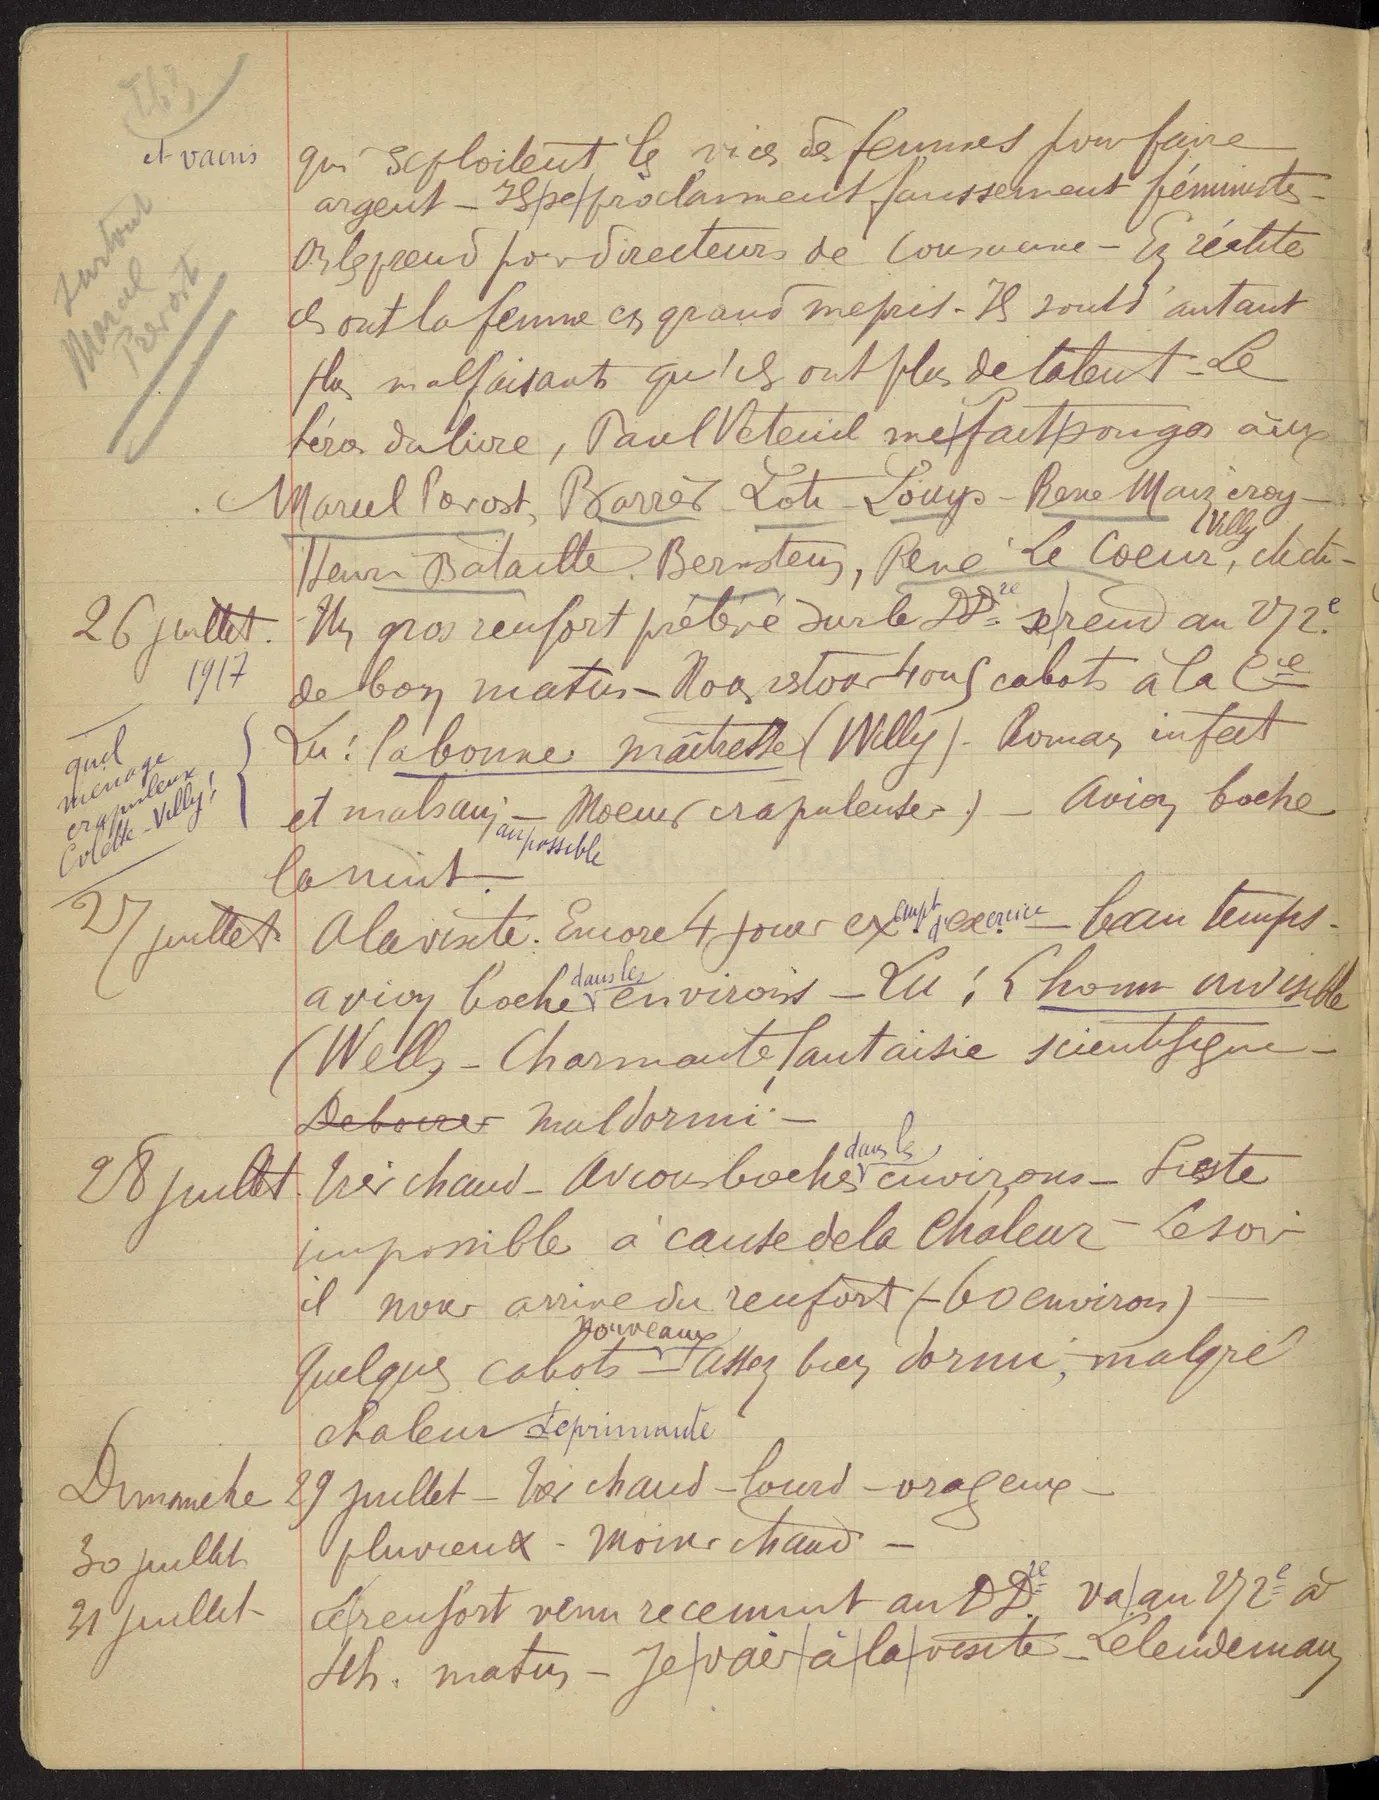 et vains
surtout
Marcel
Prevost
qui exploitent les vices des femmes pour faire
argent – Ils se proclamment faussement féministes –
On les prend pour directeurs de Conscience – En réalité
ils ont la femme en grand mepris – Ils sont d'autant
plus malfaisants qu'ils ont plus de talent – Le
héros du livre, Paul Veteuil me fait songer aux
Marcel Prévost, Barrès – Loti – Louys – René Maizeroy –
Willy
Henri Bataille. Bernstein, René Le Coeur, etc etc –
26 juillet. Un gros renfort prélévé sur le DD.re se rend au 272.e
1917
de bon matin – Nous restons 4 ou 5 cabots à la Cie
Lu : la bonne maîtresse (Willy) – Roman infect
et malsain – Moeurs crapuleuses) – Avion boche
au possible
la nuit –
quel
menage
crapuleux
Colette – Willy!
27 juillet. A la visite. Encore 4 jours exempt d'exercice – beau temps –
avion boche dans les environs – Lu : L'homme invisible
(Wells) – Charmante fantaisie scientifique –
Deboires mal dormi –
28 juillet. Très chaud – Avions boches dans les environs – Sieste
impossible à cause de la chaleur – Le soir
il nous arrive du renfort (– 60 environ) –
nouveaux
Quelques cabots – Assez bien dormi, malgré
chaleur déprimante
Dimanche 29 juillet – Très chaud – lourd – orageux –
30 juillet pluvieux – moins chaud –
31 juillet – Le renfort venu recemment au DD.re va au 272.e à
4h. matin – Je vais à la visite – Le lendemain